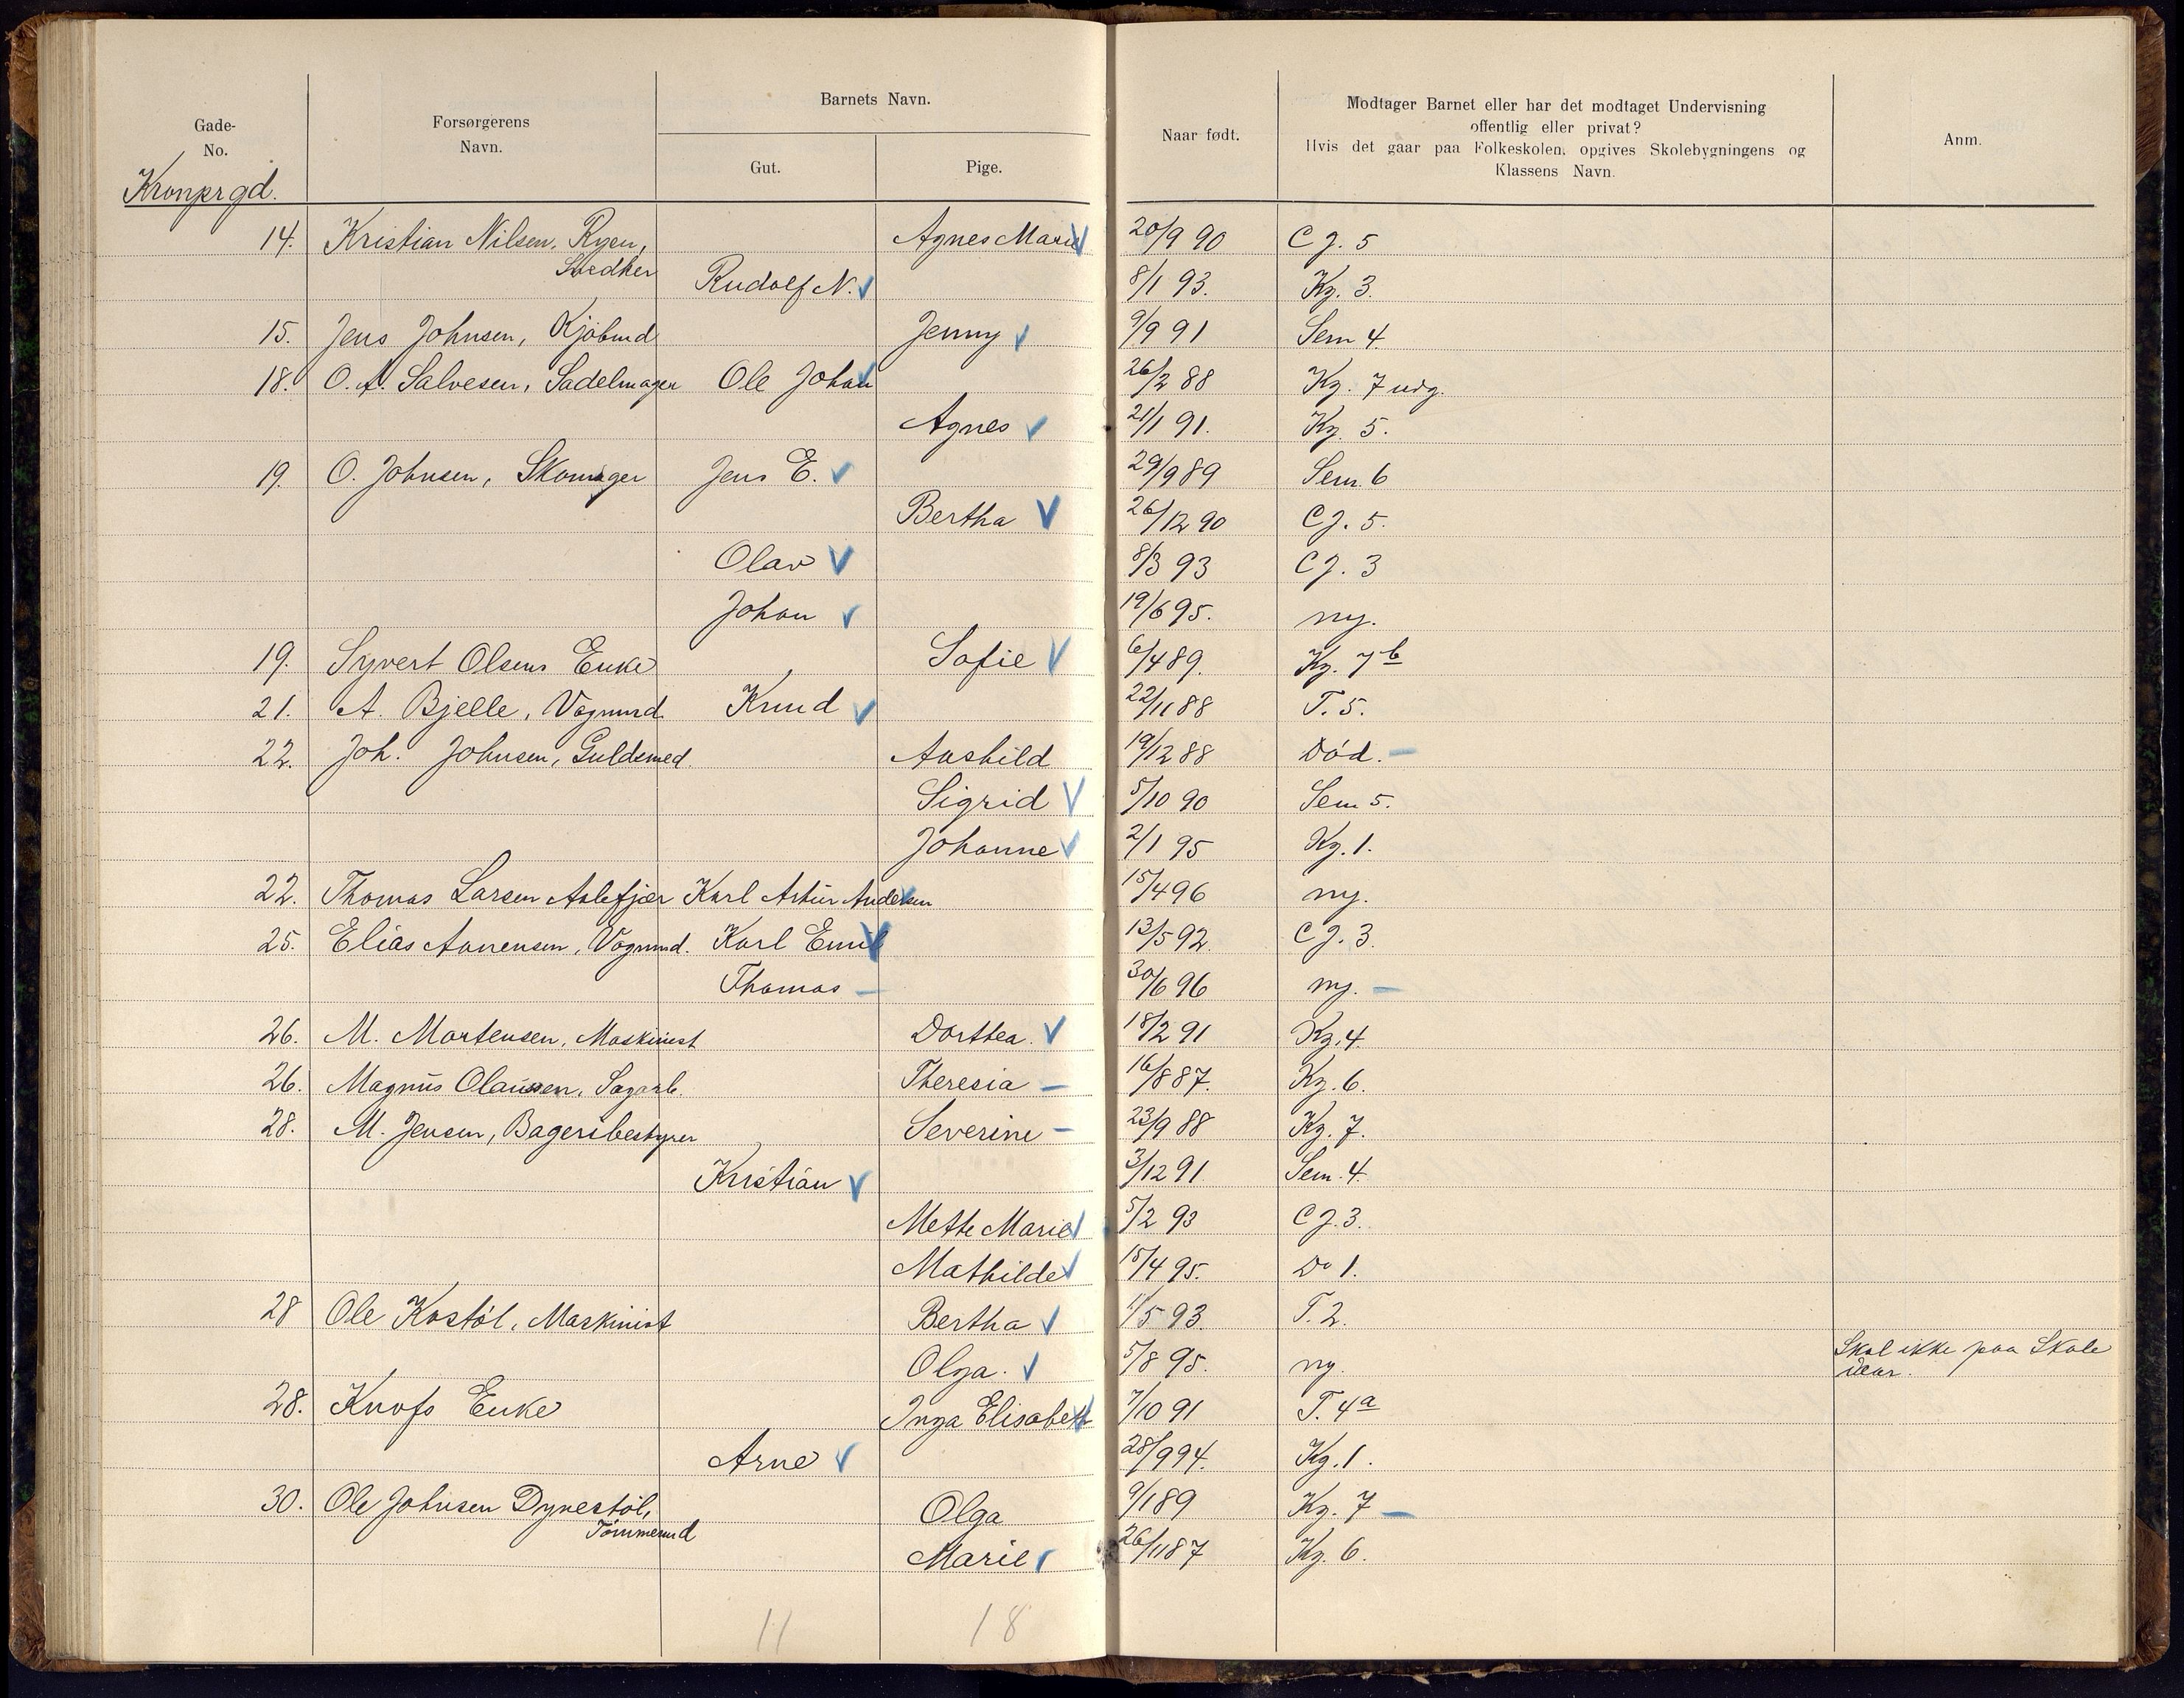 Gade-
No.
Forsørgerens
Navn.
Barnets Navn.
Gut.
Pige.
Naar født.
Modtager Barnet eller har det modtaget Undervisning
offentlig eller privat?
Hvis det gaar paa Folkeskolen, opgives Skolebygningens og
Klassens Navn.
Anm.
Kronprgd.
14. Kristian Nilsen, Ryen, Agnes Marie 20/9 90 C J. 5
Snedker Rudolf N. 8/1 93. Kg. 3.
15. Jens Johnsen, Kjøbmd Jenny 9/9 91 Sem 4
18. O. A. Salvesen, Sadelmager Ole Johan 26/2 88 Kg. 7 udg.
Agnes 21/1 91. Kg. 5.
19. O. Johnsen, Skomager Jens E. 29/9 89 Sem. 6
Bertha 26/12 90 C J. 5.
Olav 8/3 93 C J. 3
Johan 19/6 95. ny.
19. Syvert Olsens Enke Sofie 6/4 89. Kg. 7 b
21. A. Bjelle, Vognmd. Knud 22/11 88 T. 5.
22. Joh. Johnsen, Guldsmed. Aashild 19/12 88 Død. —
Sigrid 5/10 90 Sem 5.
Johanne 2/1 95 Kg. 1.
22. Thomas Larsen Aalefjær Karl Artur Andersen 15/4 96 ny.
25. Elias Aanensen, Vognmd. Karl Emil 13/5 92. C J. 3.
Thomas — 30/6 96 ny. —
26. M. Mortensen, Maskinist Dorthea. 18/2 91 Kg. 4
26. Magnus Olaussen, Sagarb. Theresia — 16/8 87. Kg. 6.
28. M. Jensen, Bageribestyrer Severine — 23/9 88 Kg. 7.
Kristian 3/12 91 Sem. 4.
Mette Marie 5/2 93 C J. 3.
Mathilde 15/4 95. Do 1.
28 Ole Kostøl, Maskinist Bertha 1/5 93. T. 2.
Olga. 5/8 95. ny. Skal ikke paa Skole
iaar.
28. Knofs Enke Inga Elisabeth 7/10 91 T. 4 a
Arne 28/9 94. Kg. 1.
30. Ole Johnsen Dynestøl, Olga 9/1 89 Kg. 7 —
Tømmermd Marie 26/11 87 Kg. 6.
11 18